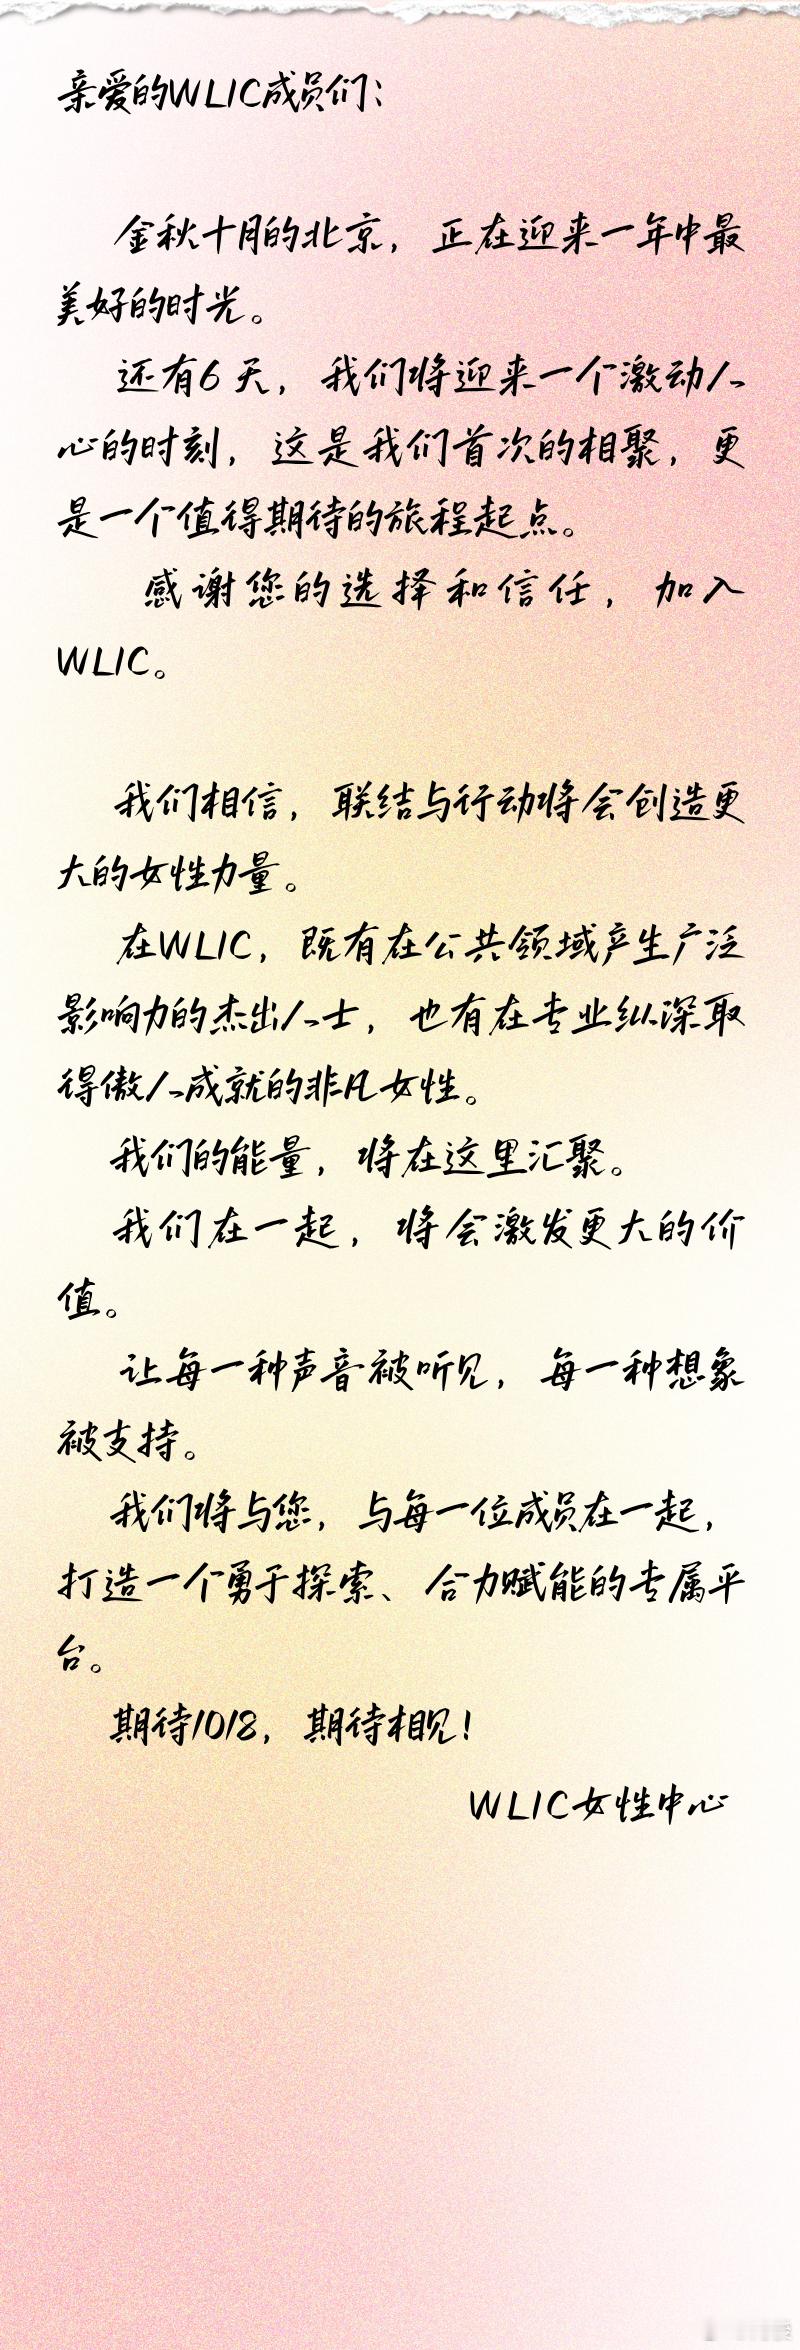 亲爱的WLIC成员们：
金秋十月的北京，正在迎来一年中最
美好的时光。
还有6天，我们将迎来一个激动人
心的时刻，这是我们首次的相聚，更
是一个值得期待的旅程起点。
感谢您的选择和信任，加入
WLIC。
我们相信，联结与行动将会创造更
大的女性力量。
在WLIC，既有在公共领域产生广泛
影响力的杰出人士，也有在专业纵深取
得傲人成就的非凡女性。
我们的能量，将在这里汇聚。
我们在一起，将会激发更大的价
值。
让每一种声音被听见，每一种想象
被支持。
我们将与您，与每一位成员在一起，
打造一个勇于探索、合力赋能的专属平
台。
期待1018，期待相见！
WLIC女性中心